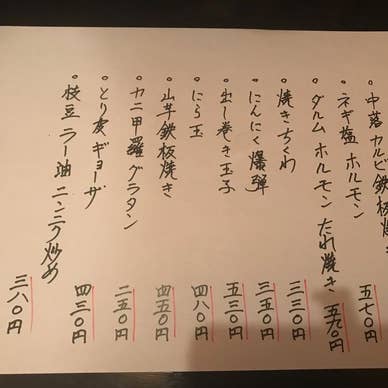 中落カルビ鉄板焼き 五七〇円
ネギ塩ホルモン
ダルムホルモンたれ焼き 五九〇円
焼きちくわ 三三〇円
にんにく爆弾 三五〇円
出し巻き玉子 五三〇円
にら玉 四八〇円
山芋鉄板焼き 四五〇円
カニ甲羅グラタン 二五〇円
とり皮ギョーザ 四三〇円
枝豆ラー油ニンニク炒め 三八〇円